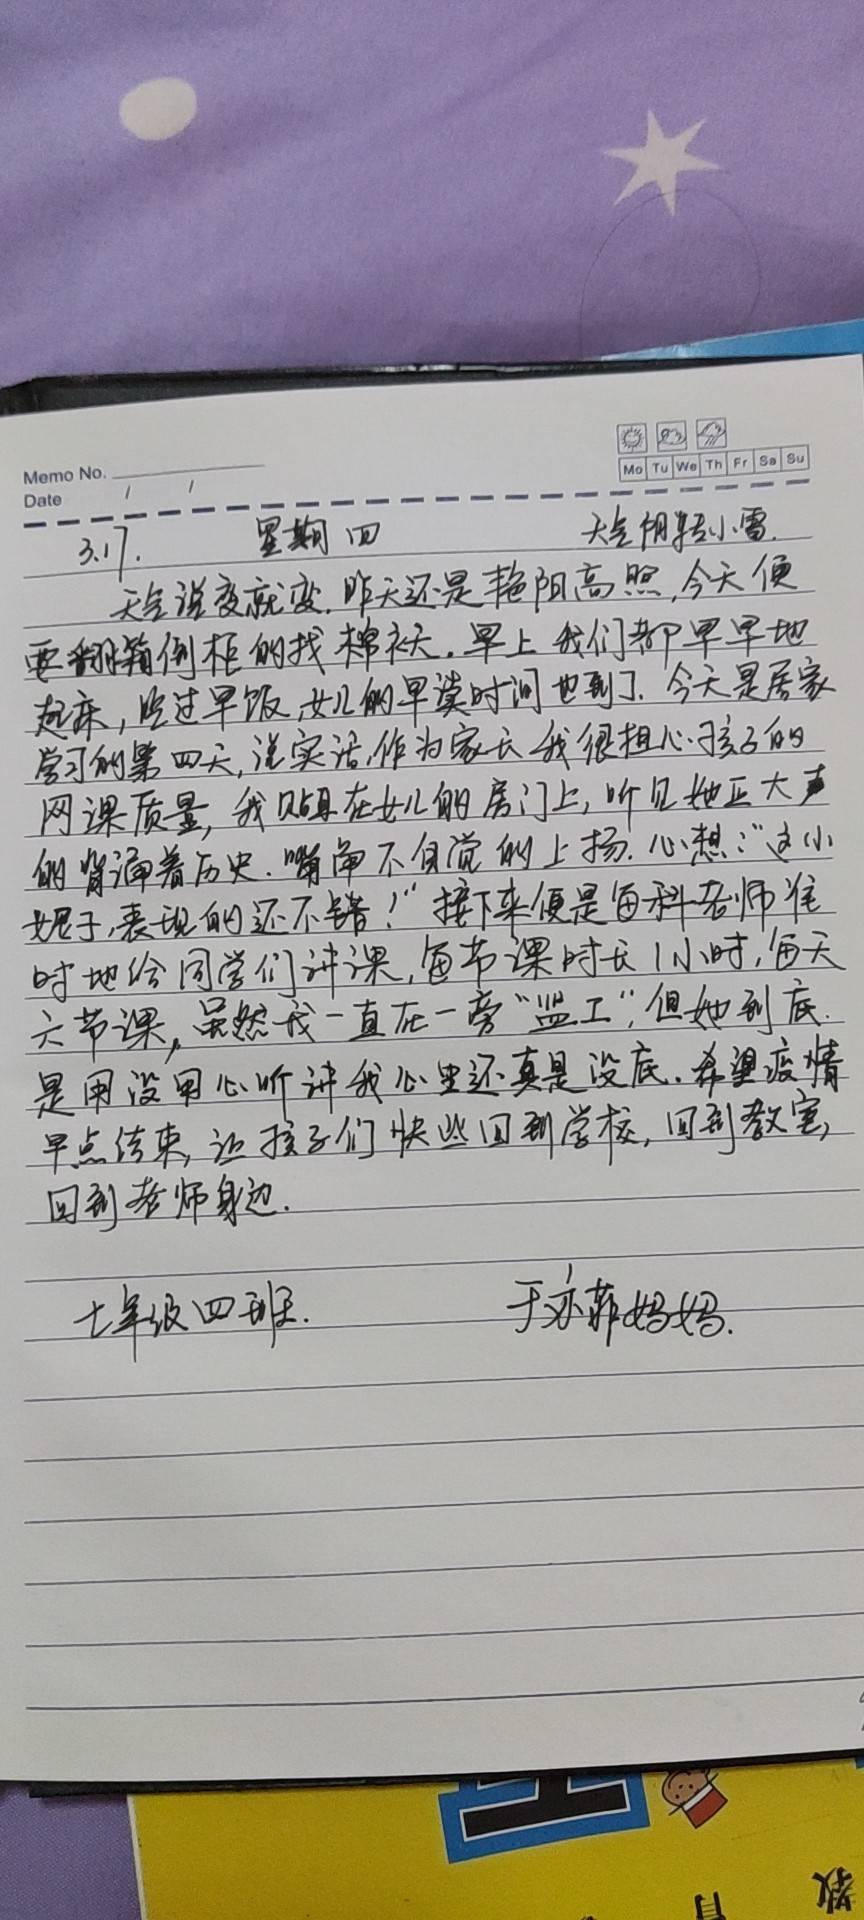 Memo No.
Mo Tu We Th Fr Sa Su
Date / /
3.17. 星期四 天气阴转小雪.
天气说变就变,昨天还是艳阳高照,今天便
要翻箱倒柜的找棉袄.早上我们都早早地
起床,吃过早饭,女儿的早读时间也到了.今天是居家
学习的第四天,说实话,作为家长我很担心孩子的
网课质量,我贴在女儿的房门上,听见她正大声
的背诵着历史.嘴角不自觉的上扬.心想:“这小
妮子,表现的还不错!”接下来便是每科老师准
时地给同学们讲课,每节课时长1小时,每天
六节课,虽然我一直在一旁“监工”,但她到底.
是用没用心听讲我心里还真是没底.希望疫情
早点结束,让孩子们快些回到学校,回到教室,
回到老师身边.
七年级四班. 于亦菲妈妈.
教育